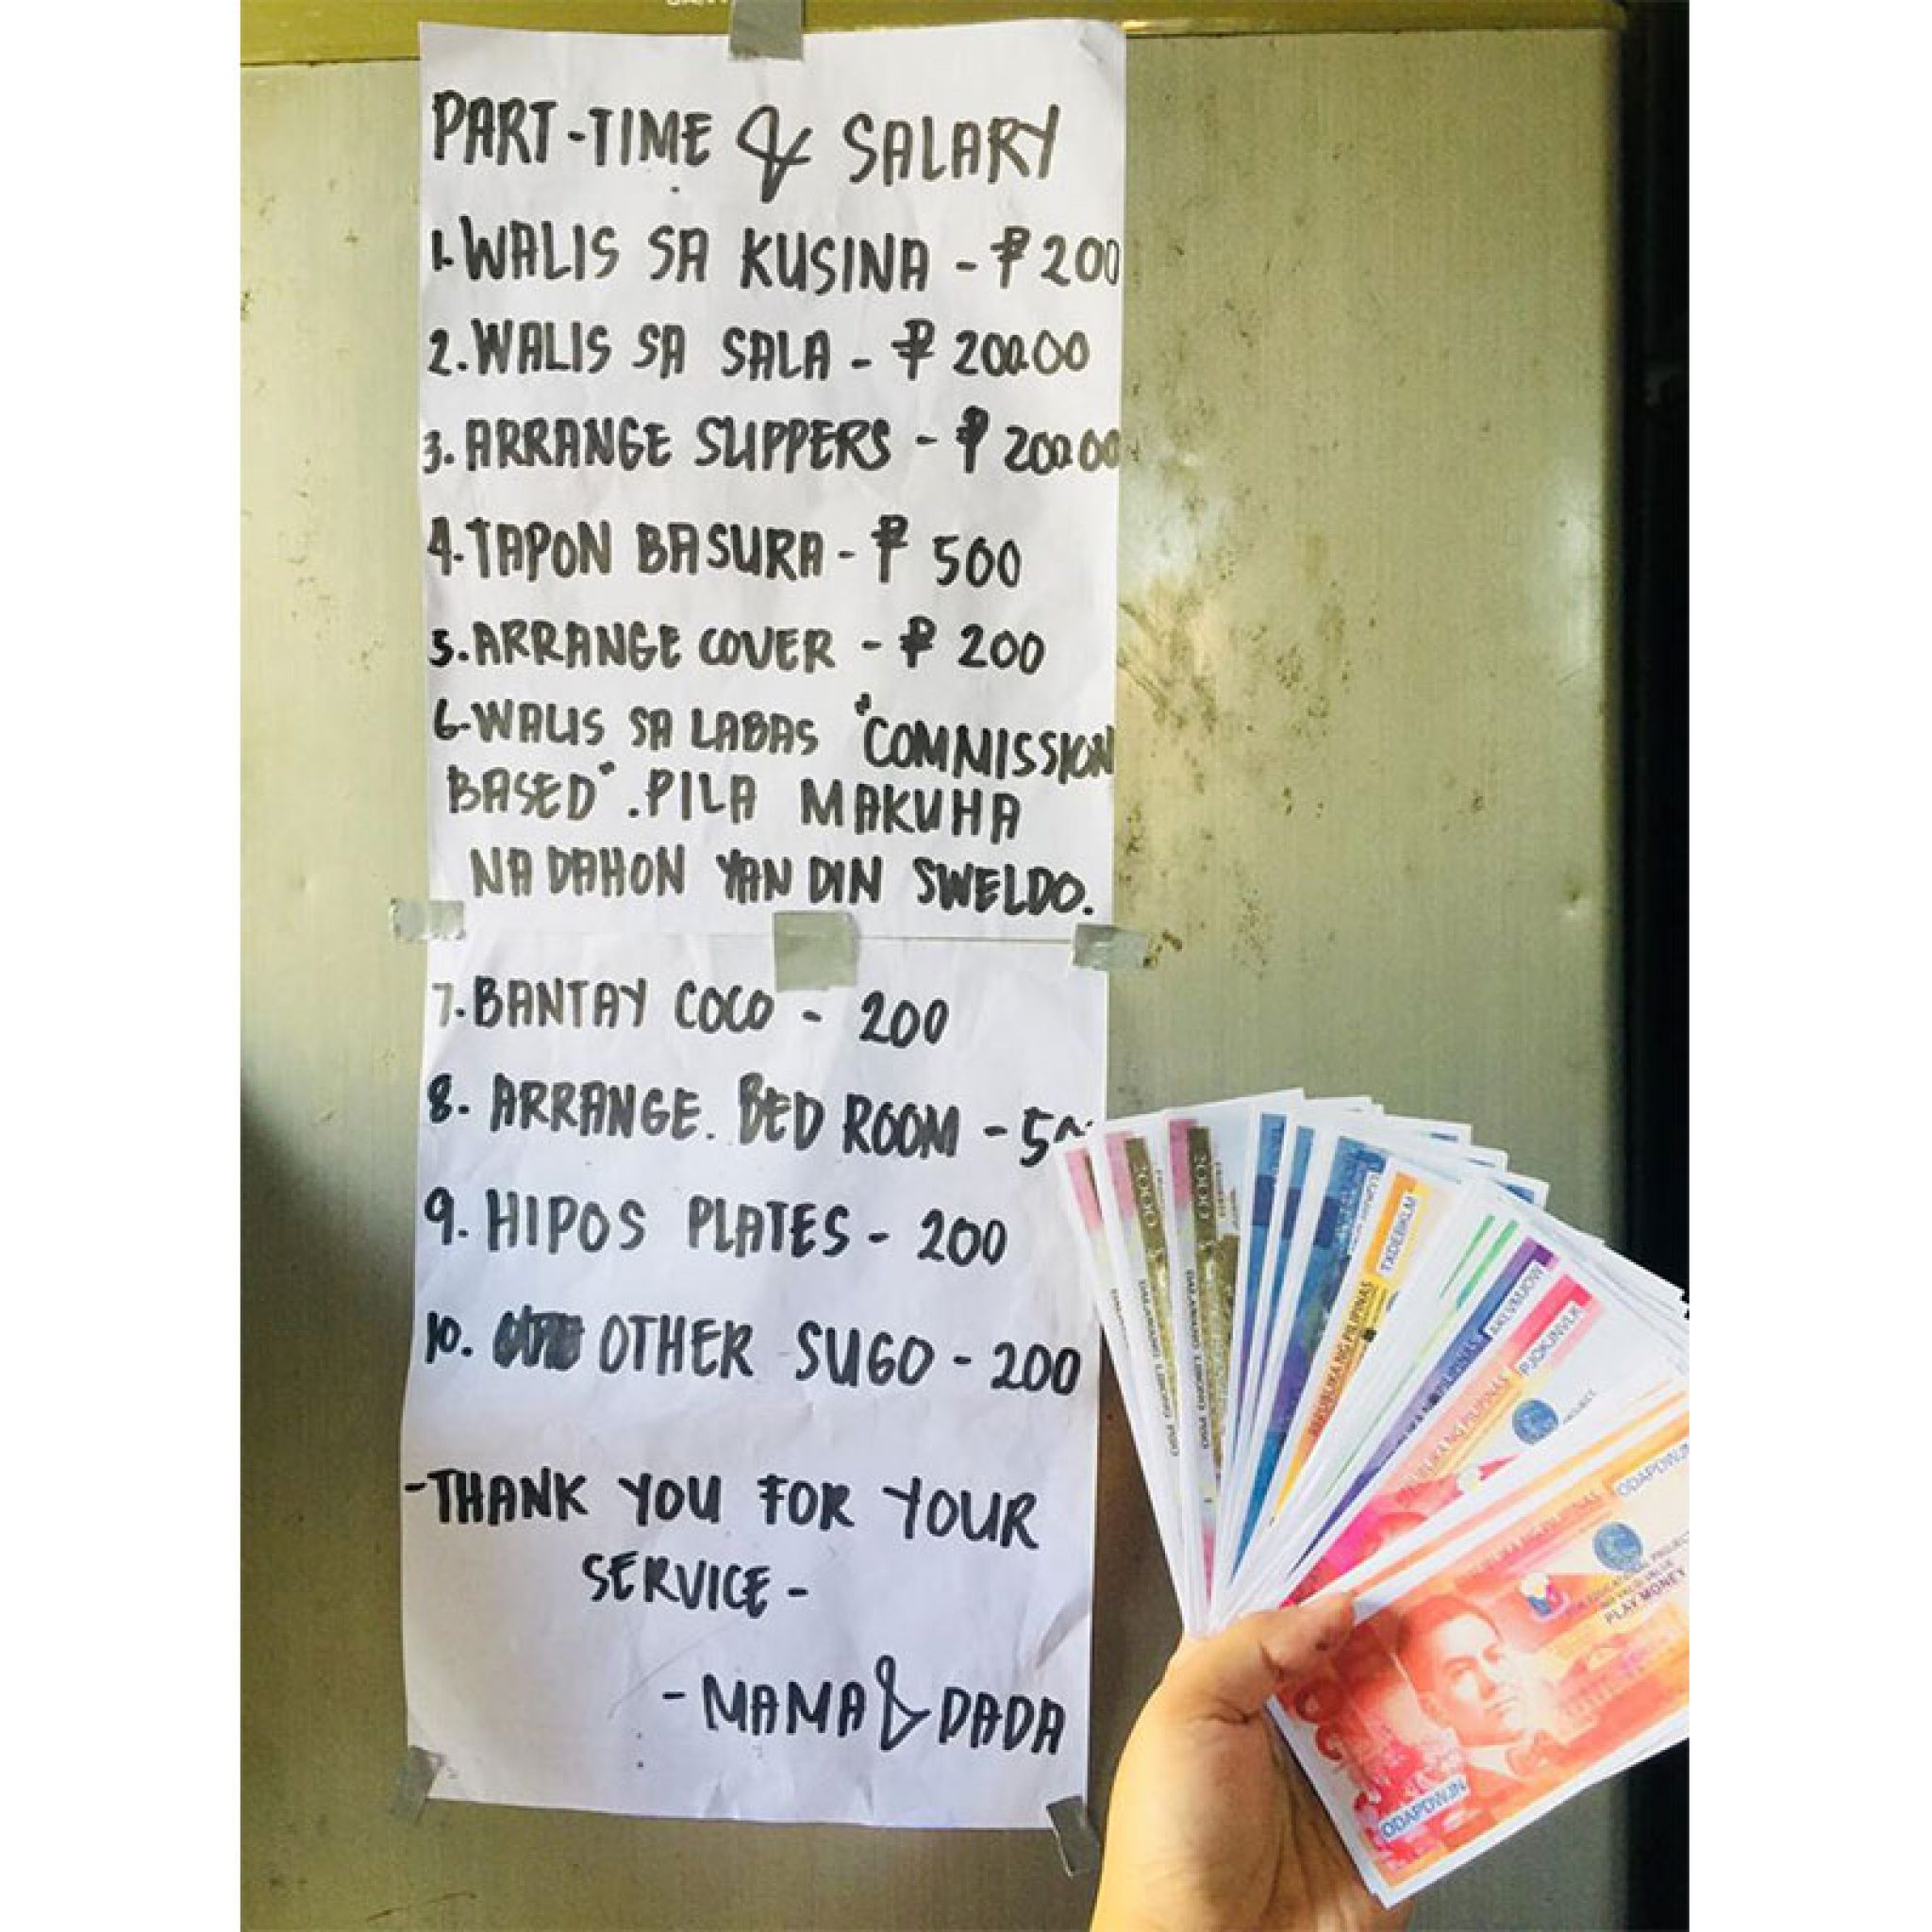 PART-TIME & SALARY
1. WALIS SA KUSINA - ₱ 200
2. WALIS SA SALA - ₱ 200.00
3. ARRANGE SLIPPERS - ₱ 200.00
4. TAPON BASURA - ₱ 500
5. ARRANGE COVER - ₱ 200
6. WALIS SA LABAS "COMMISSION
BASED". PILA MAKUHA
NA DAHON YAN DIN SWELDO.
7. BANTAY COCO - 200
8. ARRANGE. BED ROOM -
9. HIPOS PLATES - 200
10. OTHER SUGO - 200
-THANK YOU FOR YOUR
SERVICE -
- MAMA & DADA
REPUBLIKA NG PILIPINAS
PILIPINAS
NG PILIPINAS
PJOKJNVLR
PROJECT
ODAPDWJN
PROJECT
NO VALUE
PLAY MONEY
ODAPDWJN